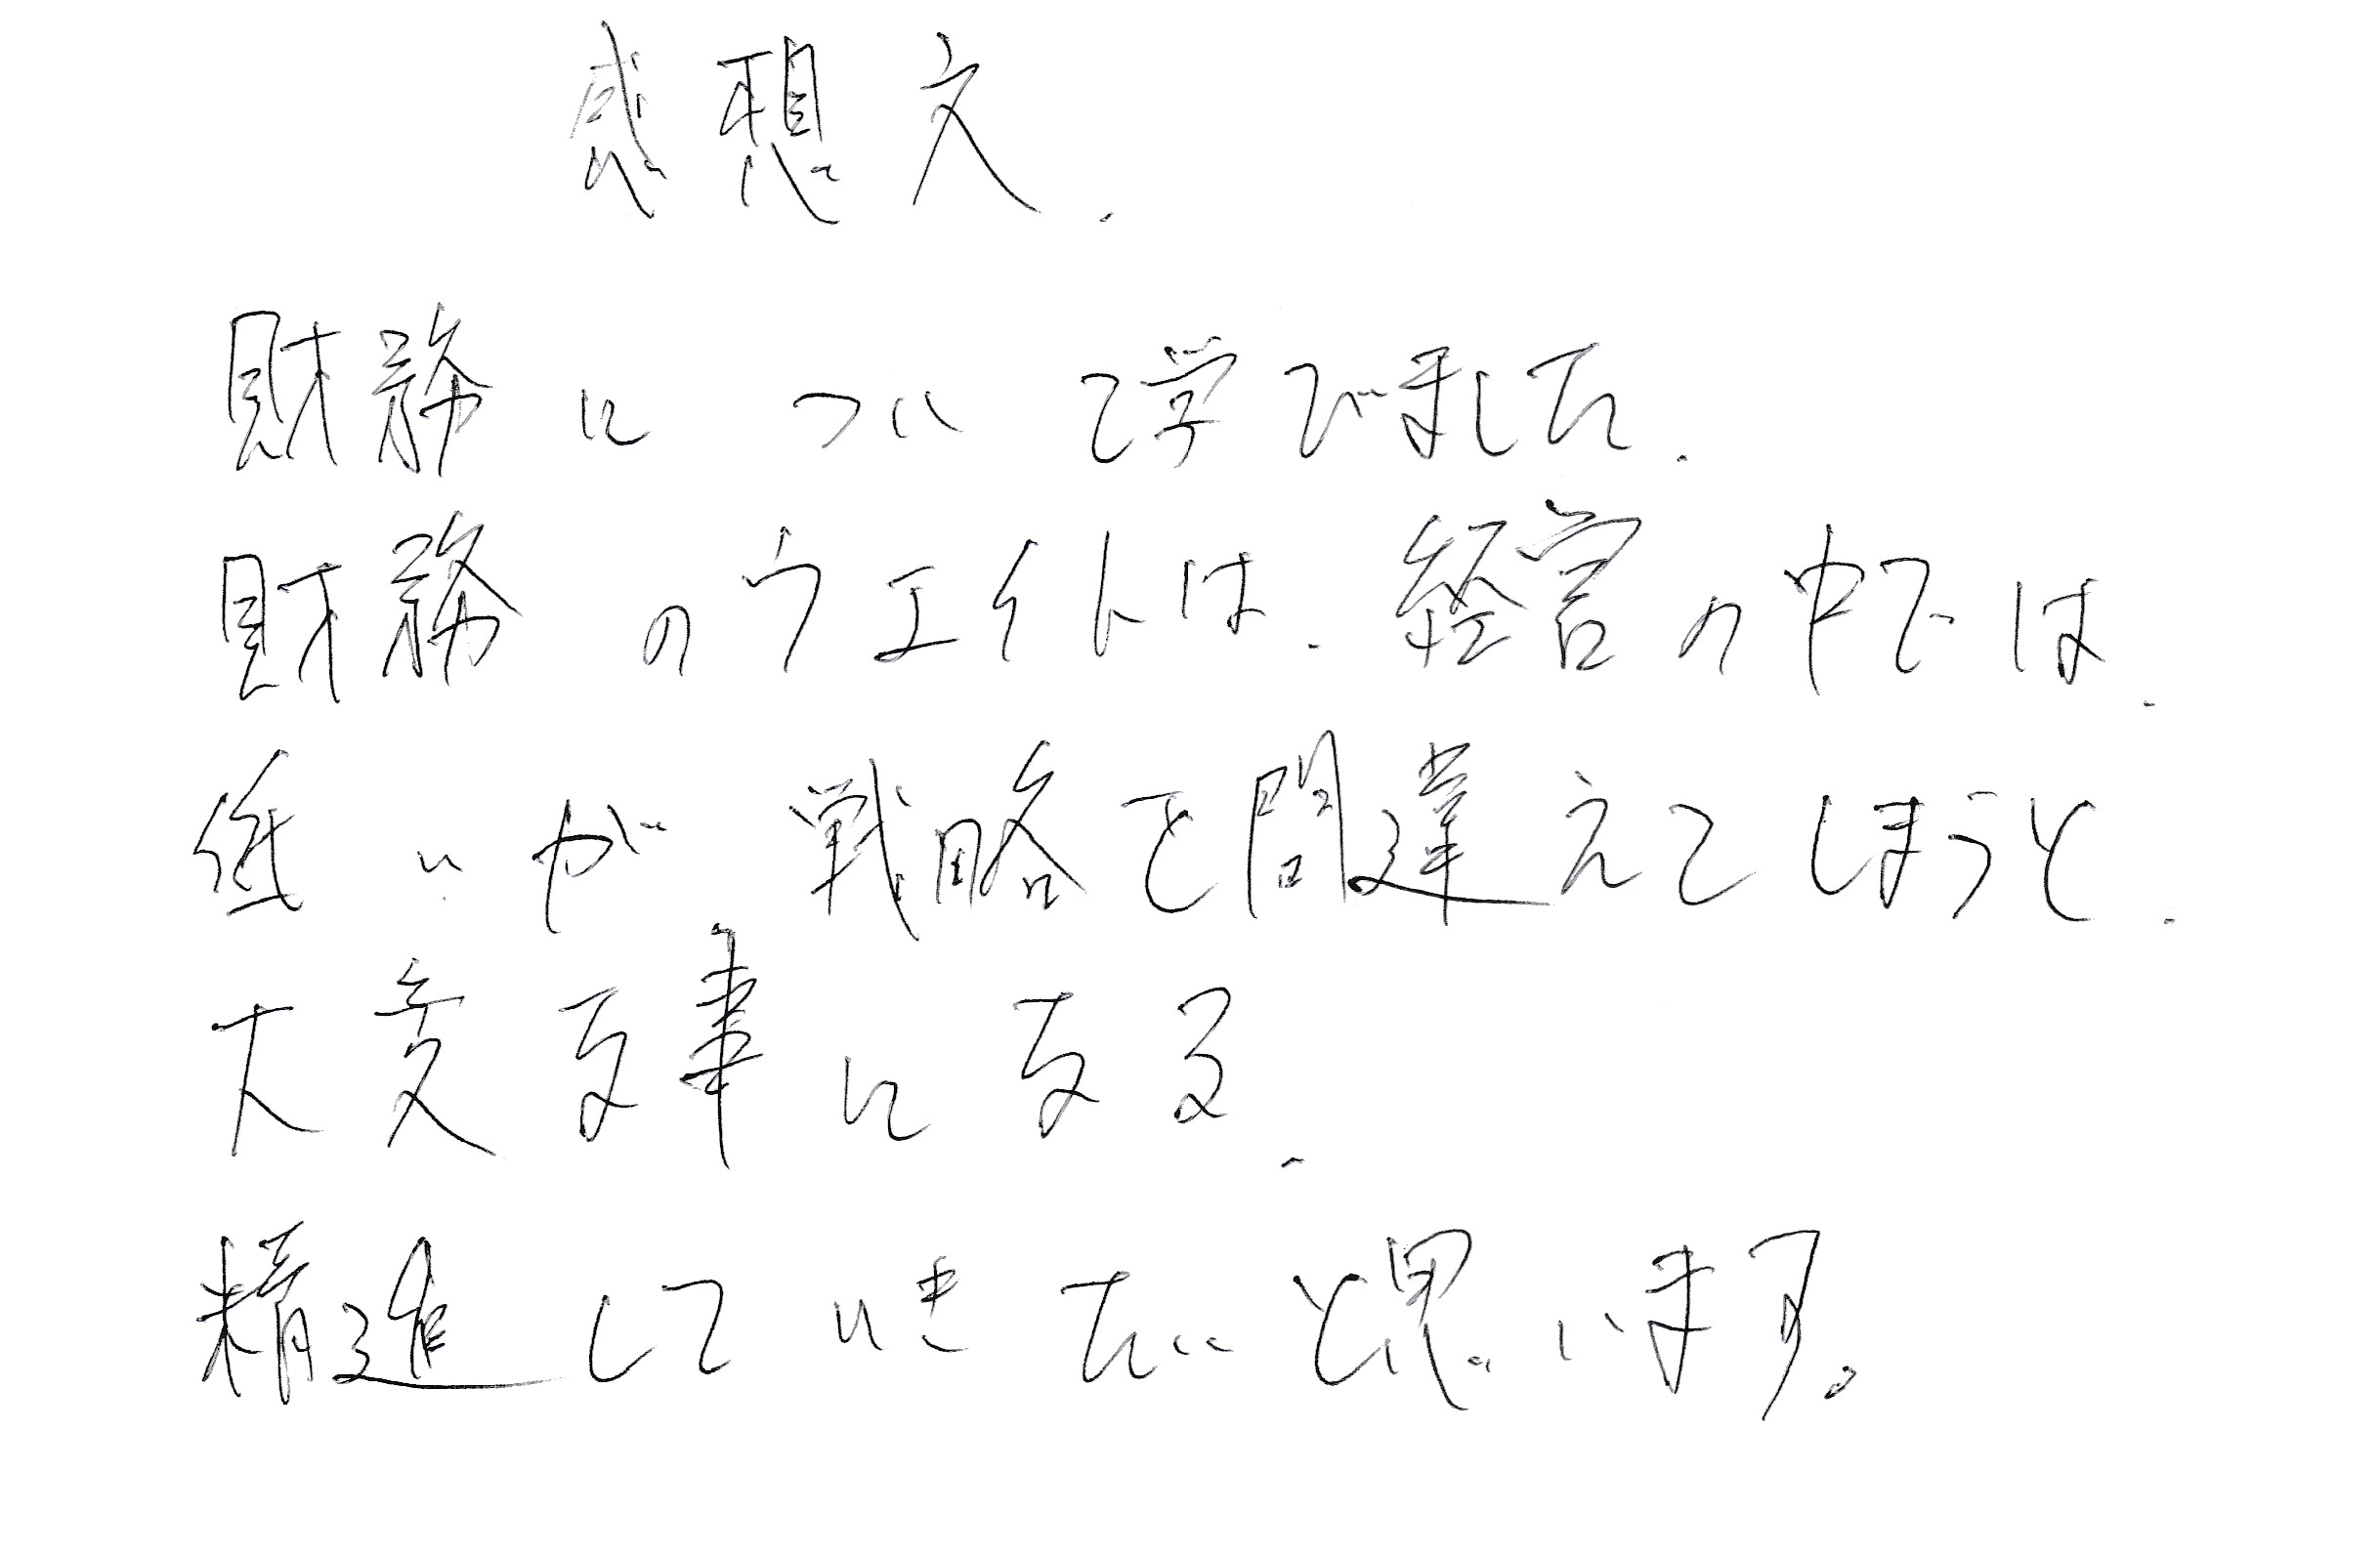 感想文.
財務について学びました.
財務のウエイトは.経営の中では.
低いが戦略を間違えてしまうと.
大変な事になる.
精進していきたいと思います。